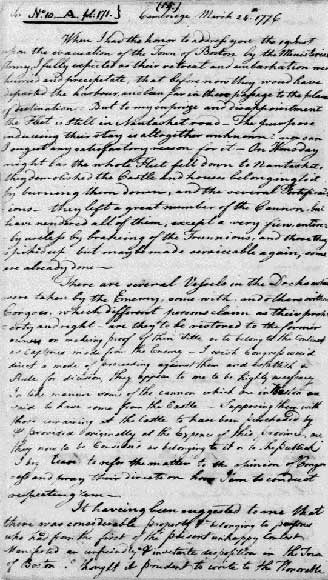 (19.)
No. 10. A. pl. 171.} Cambridge March 24th 1776
When I had the honor to address you the 19 Inst. upon
the evacuation of the Town of Boston by the Ministerial
Army, I fully expected as their retreat and embarkation were
hurried and precipitate, that before now they would have
departed the harbour, and been far in their passage to the place
of destination. But to my surprize and disappointment
the Fleet is still in Nantasket road. The purpose
inducing their stay is altogether unknown; nor can
I suggest any satisfactory reason for it. On Wednesday
night last the whole Fleet fell down to Nantasket,
they demolished the Castle and houses belonging to it
by burning them down, and the several Fortificat
ions. they left a great number of the Cannon, but
have rendered all of them, except a very few, entire
ly useless by breaking of the Trunnions, and those they
spiked up but may be made serviceable again, some
are already done
There are several Vessels in the Docks which
were taken by the Enemy, some with, and others without
Cargoes, which different persons claim as their prop
erty and right. are they to be restored to the former
owners on making proof of their Title, or to belong to the Continent
as Captures made from the Enemy. I wish Congress would
direct a mode of proceeding against them and establish a
Rule for decision, they appear to me to be highly necessary
in like manner some of the cannon which are in Boston are
said to have come from the Castle. Supposing them, with
those remaining at the Castle to have been purchased by
& provided originally at the Expence of this province, are
they now to be considered as belonging to it or to the publick
I beg leave to refer the matter to the opinion of Congr
ess and pray their direction how I am to conduct
respecting them
It having been suggested to me that
there was considerable property &c belonging to persons
who had from the first of the present unhappy contest
manifested an unfriendly & inveterate disposition in the Town
of Boston, I thought it prudent to write to the Honorable